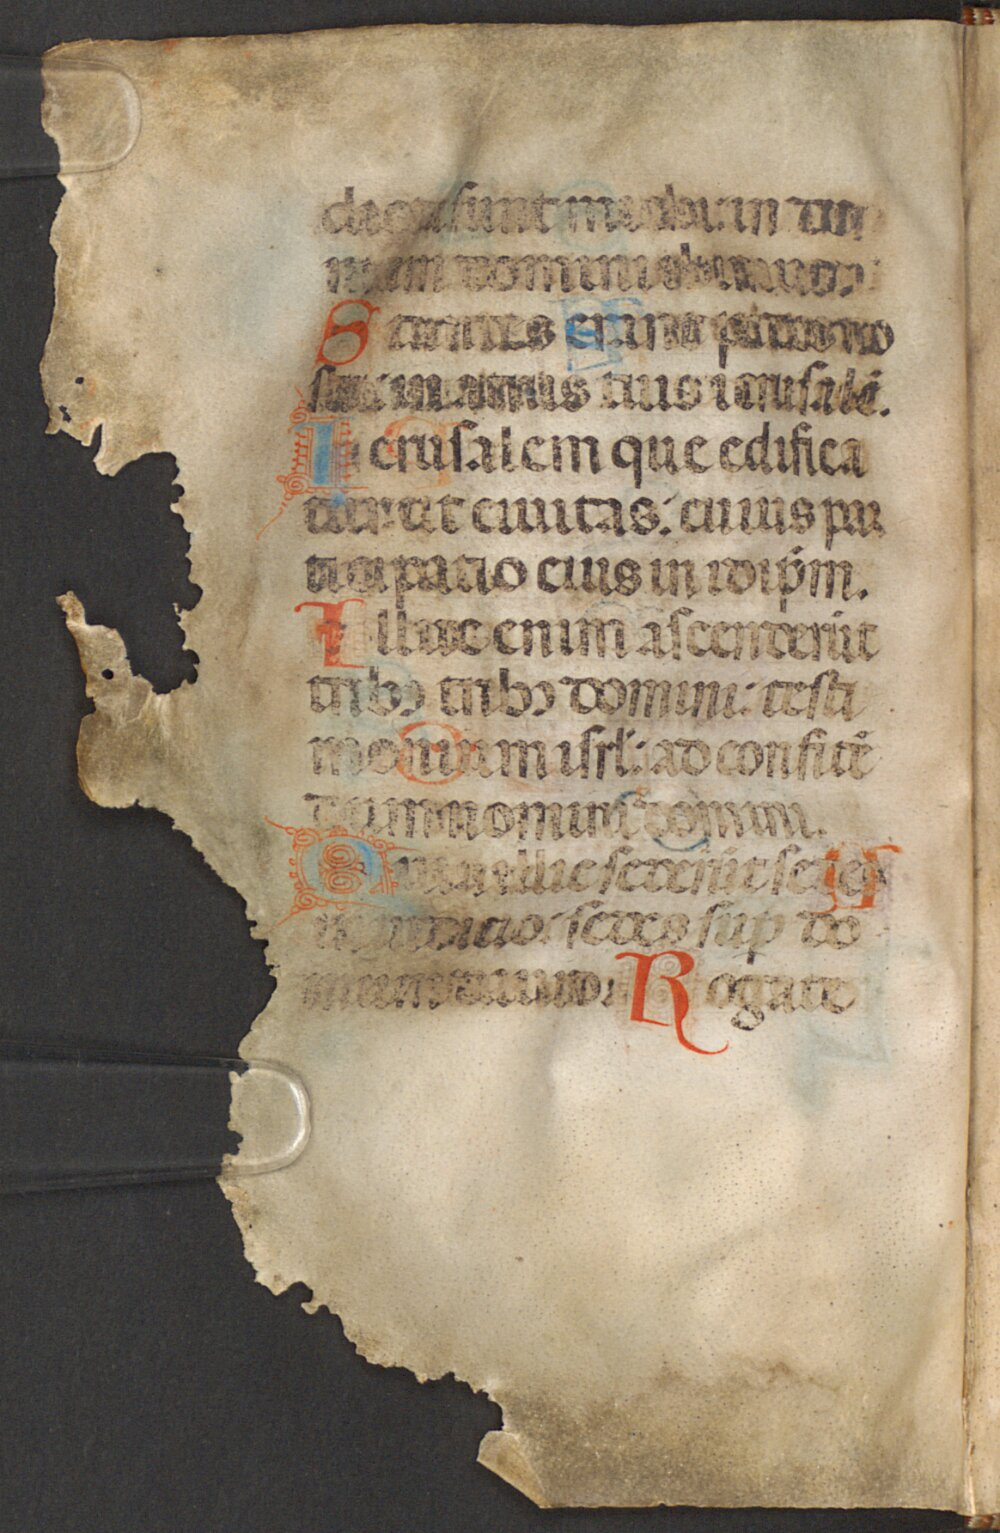 dicta sunt michi: in do
mum domini ibimus.
Stantes erant pedes no
stri: in atriis tuis ierusalē.
Ierusalem que edifica
tur ut ciuitas: cuius par
ticipatio eius in idip̄m.
Illuc enim ascenderūt
tribꝫ tribꝫ domini: testi
monium isrl̄: ad confitē
dum nomini domini.
Quia illic sederūt sedes
in iudicio: sedes sup do
mum dauid. Rogate